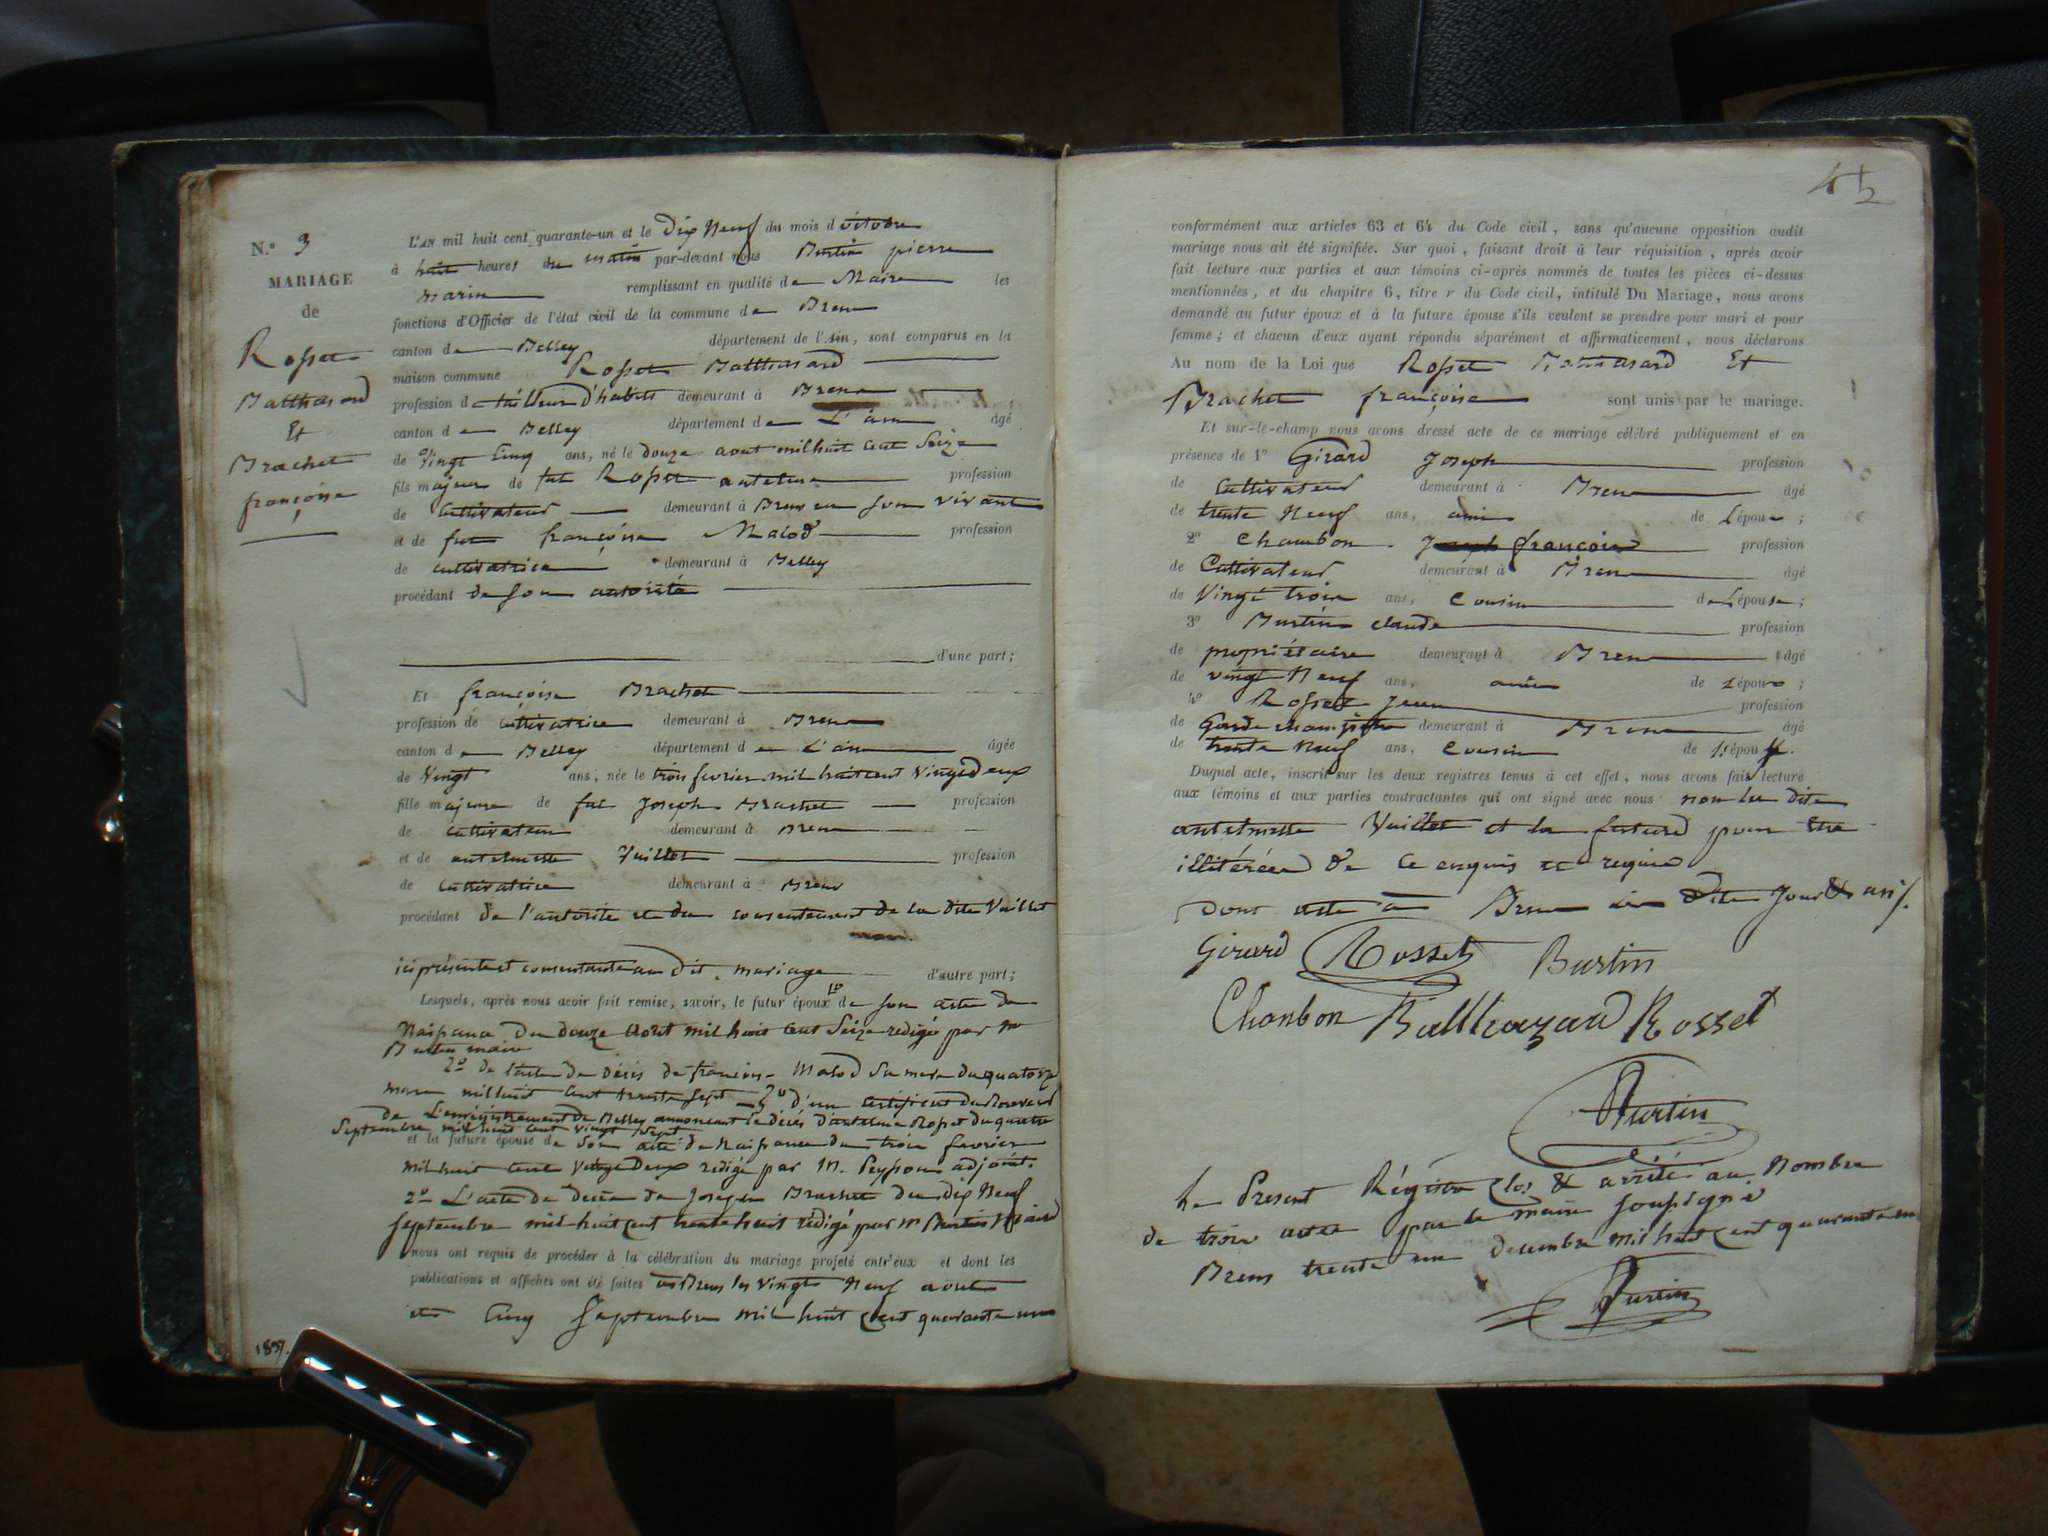 N.º 3
MARIAGE
de
Rosset
Balthasard
Et
Brachet
françoise
L'AN mil huit cent quarante-un et le dix Neuf du mois d'octobre
à huit heures du matin par-devant nous Burtin pierre
marin remplissant en qualité de Maire les
fonctions d'Officier de l'état civil de la commune de Brens
canton de Belley département de l'Ain, sont comparus en la
maison commune Rosset Balthasard
profession de tailleur d'habits demeurant à Brens
canton de Belley département de L'ain âgé
de Vingt Cinq ans, né le douze aout mil huit cent Seize
fils majeur de fut Rosset antelme profession
de Cultivateur demeurant à Brens en son vivant
et de fut françoise Malod profession
de cultivatrice demeurant à Belley
procédant de son autorité
d'une part;
Et françoise Brachet
profession de Cultivatrice demeurant à Brens
canton de Belley département de L'ain âgée
de Vingt ans, née le trois fevrier mil huit cent Vingt deux
fille majeure de fut Joseph Brachet profession
de Cultivateur demeurant à Brens
et de antelmette Vuillet profession
de Cultivatrice demeurant à Brens
procédant de l'autorité et du consentement de la dite Vuillet
ici présente et consentante au dit mariage d'autre part;
Lesquels, après nous avoir fait remise, savoir, le futur époux 1º de son acte de
Naissance du douze Aout mil huit cent Seize redigé par mr
Burtin maire
2º de l'acte de décès de françoise Malod Sa mere du quatorze
mars mil huit Cent trente Sept 3º d'un certificat du Receveur
de L'enregistrement de Belley annoncant le décès d'antelme Rosset du quatre
Septembre mil huit cent vingt Sept
et la future épouse de Son acte de Naissance du trois fevrier
mil huit cent Vingt deux redigé par M. Peysson adjoint.
2º L'acte de décès de Joseph Brachet du dix Neuf
septembre mil huit cent trente huit rédigé par mr Burtin Maire
nous ont requis de procéder à la célébration du mariage projeté entr'eux et dont les
publications et affiches ont été faites à Brens les vingt Neuf aout
et Cinq Septembre mil huit Cent quarante un
1837.
45
conformément aux articles 63 et 64 du Code civil, sans qu'aucune opposition audit
mariage nous ait été signifiée. Sur quoi, faisant droit à leur réquisition, après avoir
fait lecture aux parties et aux témoins ci-après nommés de toutes les pièces ci-dessus
mentionnées, et du chapitre 6, titre v du Code civil, intitulé Du Mariage, nous avons
demandé au futur époux et à la future épouse s'ils veulent se prendre pour mari et pour
femme; et chacun d'eux ayant répondu séparément et affirmativement, nous déclarons
Au nom de la Loi que Rosset Balthasard Et
Brachet françoise sont unis par le mariage.
Et sur-le-champ nous avons dressé acte de ce mariage célébré publiquement et en
présence de 1º Girard Joseph profession
de Cultivateur demeurant à Brens âgé
de trente Neuf ans, ami de L'époux;
2º Chambon Joseph françois profession
de Cultivateur demeurant à Brens âgé
de Vingt trois ans, Cousin de L'épouse;
3º Burtin claude profession
de propriétaire demeurant à Brens âgé
de vingt Neuf ans, ami de L'époux;
4º Rosset Jean profession
de Garde champêtre demeurant à Brens âgé
de trente Neuf ans, Cousin de L'époux.
Duquel acte, inscrit sur les deux registres tenus à cet effet, nous avons fait lecture
aux témoins et aux parties contractantes qui ont signé avec nous non la dite
antelmette Vuillet et la future pour être
illitérées de ce enquis et requises
dont acte à Brens les dits Jour & an
Girard Rosset Burtin
Chanbon Balthazard Rosset
Burtin
Le Present Régistre Clos & arrêté au Nombre
de trois actes par le maire soussigné
Brens trente un decembre mil huit cent quarante un
Burtin